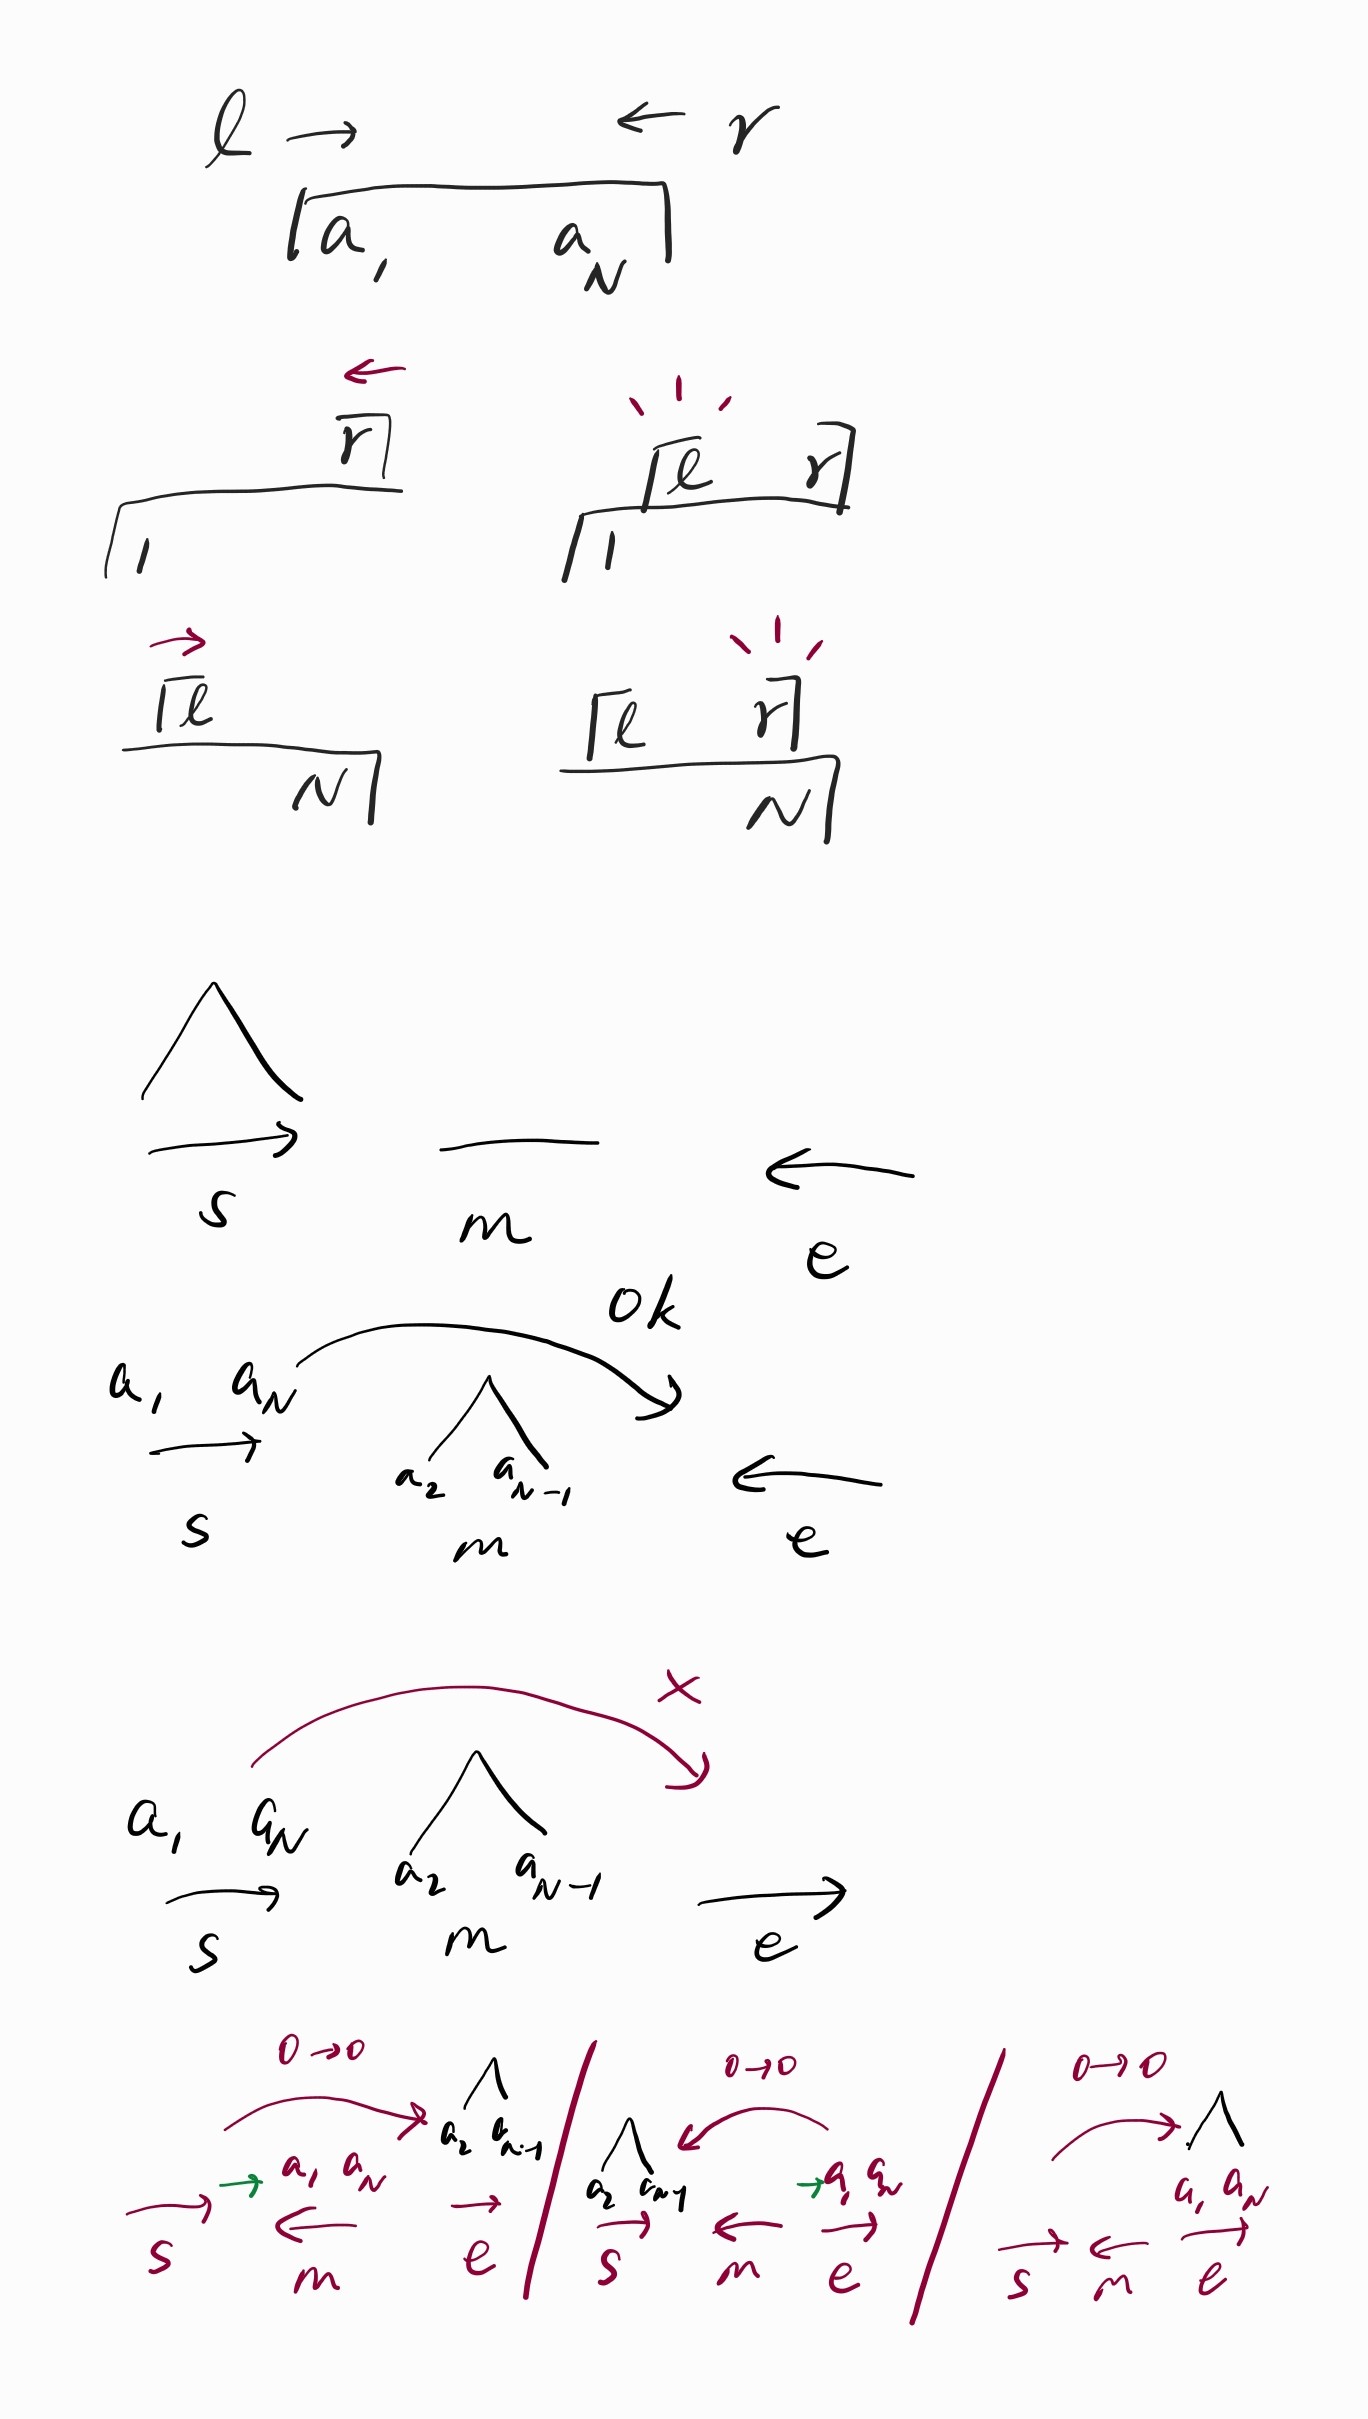 l → ← r
a₁ a_N
← r
1
l r
1
→ l
N
l r
N
s m e
ok
a₁ a_N
a₂ a_N-1
s m e
×
a₁ a_N
a₂ a_N-1
s m e
0→0 0→0 0→0
a₂ a_n-1
→ a₁ a_N
s m e
a₂ a_N-1
→ a₁ a_N
s m e
a₁ a_N
s m e